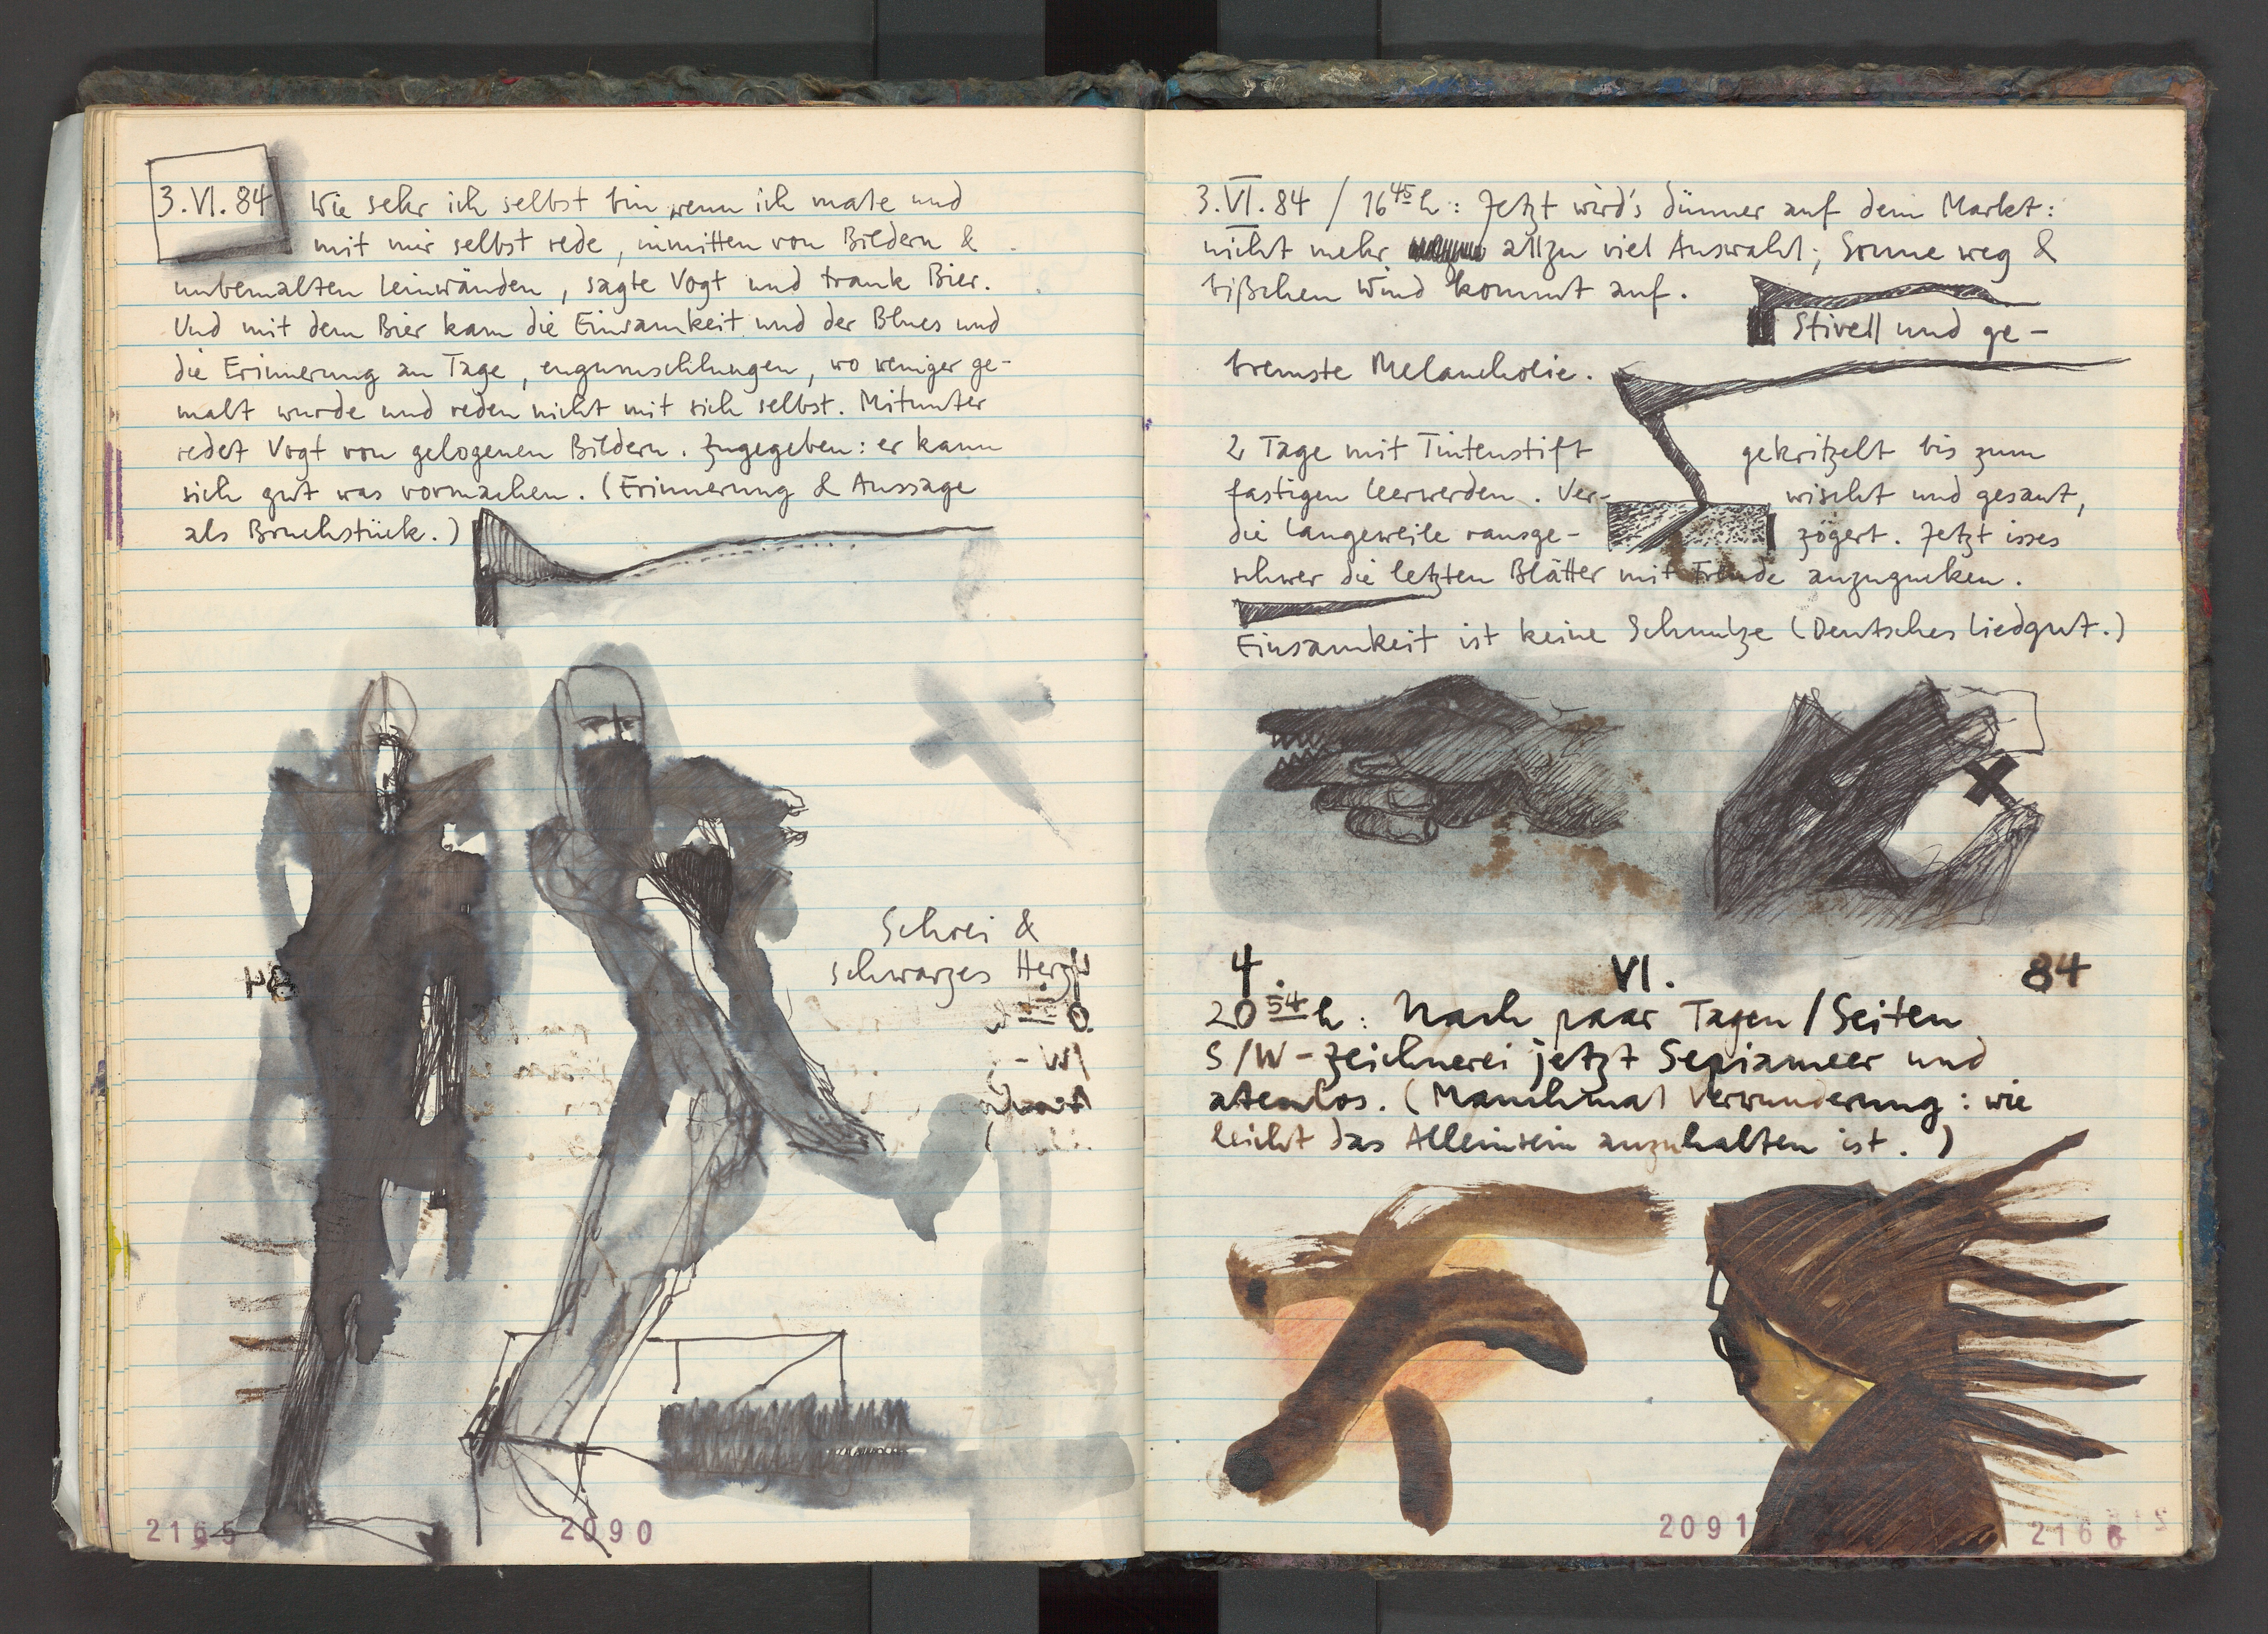 3.VI.84 Wie sehr ich selbst bin, wenn ich male und
mit mir selbst rede, inmitten von Bildern &
unbemalten Leinwänden, sagte Vogt und trank Bier.
Und mit dem Bier kam die Einsamkeit und der Blues und
die Erinnerung an Tage, engumschlungen, wo weniger ge-
malt wurde und reden nicht mit sich selbst. Mitunter
redet Vogt von gelogenen Bildern. Zugegeben: er kann
sich gut was vormachen. (Erinnerung & Aussage
als Bruchstück.)
Schrei &
schwarzes Herz
2165 2090
3.VI.84 / 16 45 h: Jetzt wird's dünner auf dem Markt:
nicht mehr allzu viel Auswahl; Sonne weg &
bißchen Wind kommt auf.
Stivell und ge-
bremste Melancholie.
2 Tage mit Tintenstift gekritzelt bis zum
fastigen leerwerden. Ver- wischt und gesaut,
die Langeweile rausge- zögert. Jetzt isses
schwer die letzten Blätter mit Freude anzugucken.
Einsamkeit ist keine Schmulze (Deutsches Liedgut.)
4. VI. 84
20 54 h: Nach paar Tagen/Seiten
S/W-Zeichnerei jetzt Sepiameer und
atemlos. (Manchmal Verwunderung: wie
leicht das Alleinsein anzuhalten ist.)
2091 2166